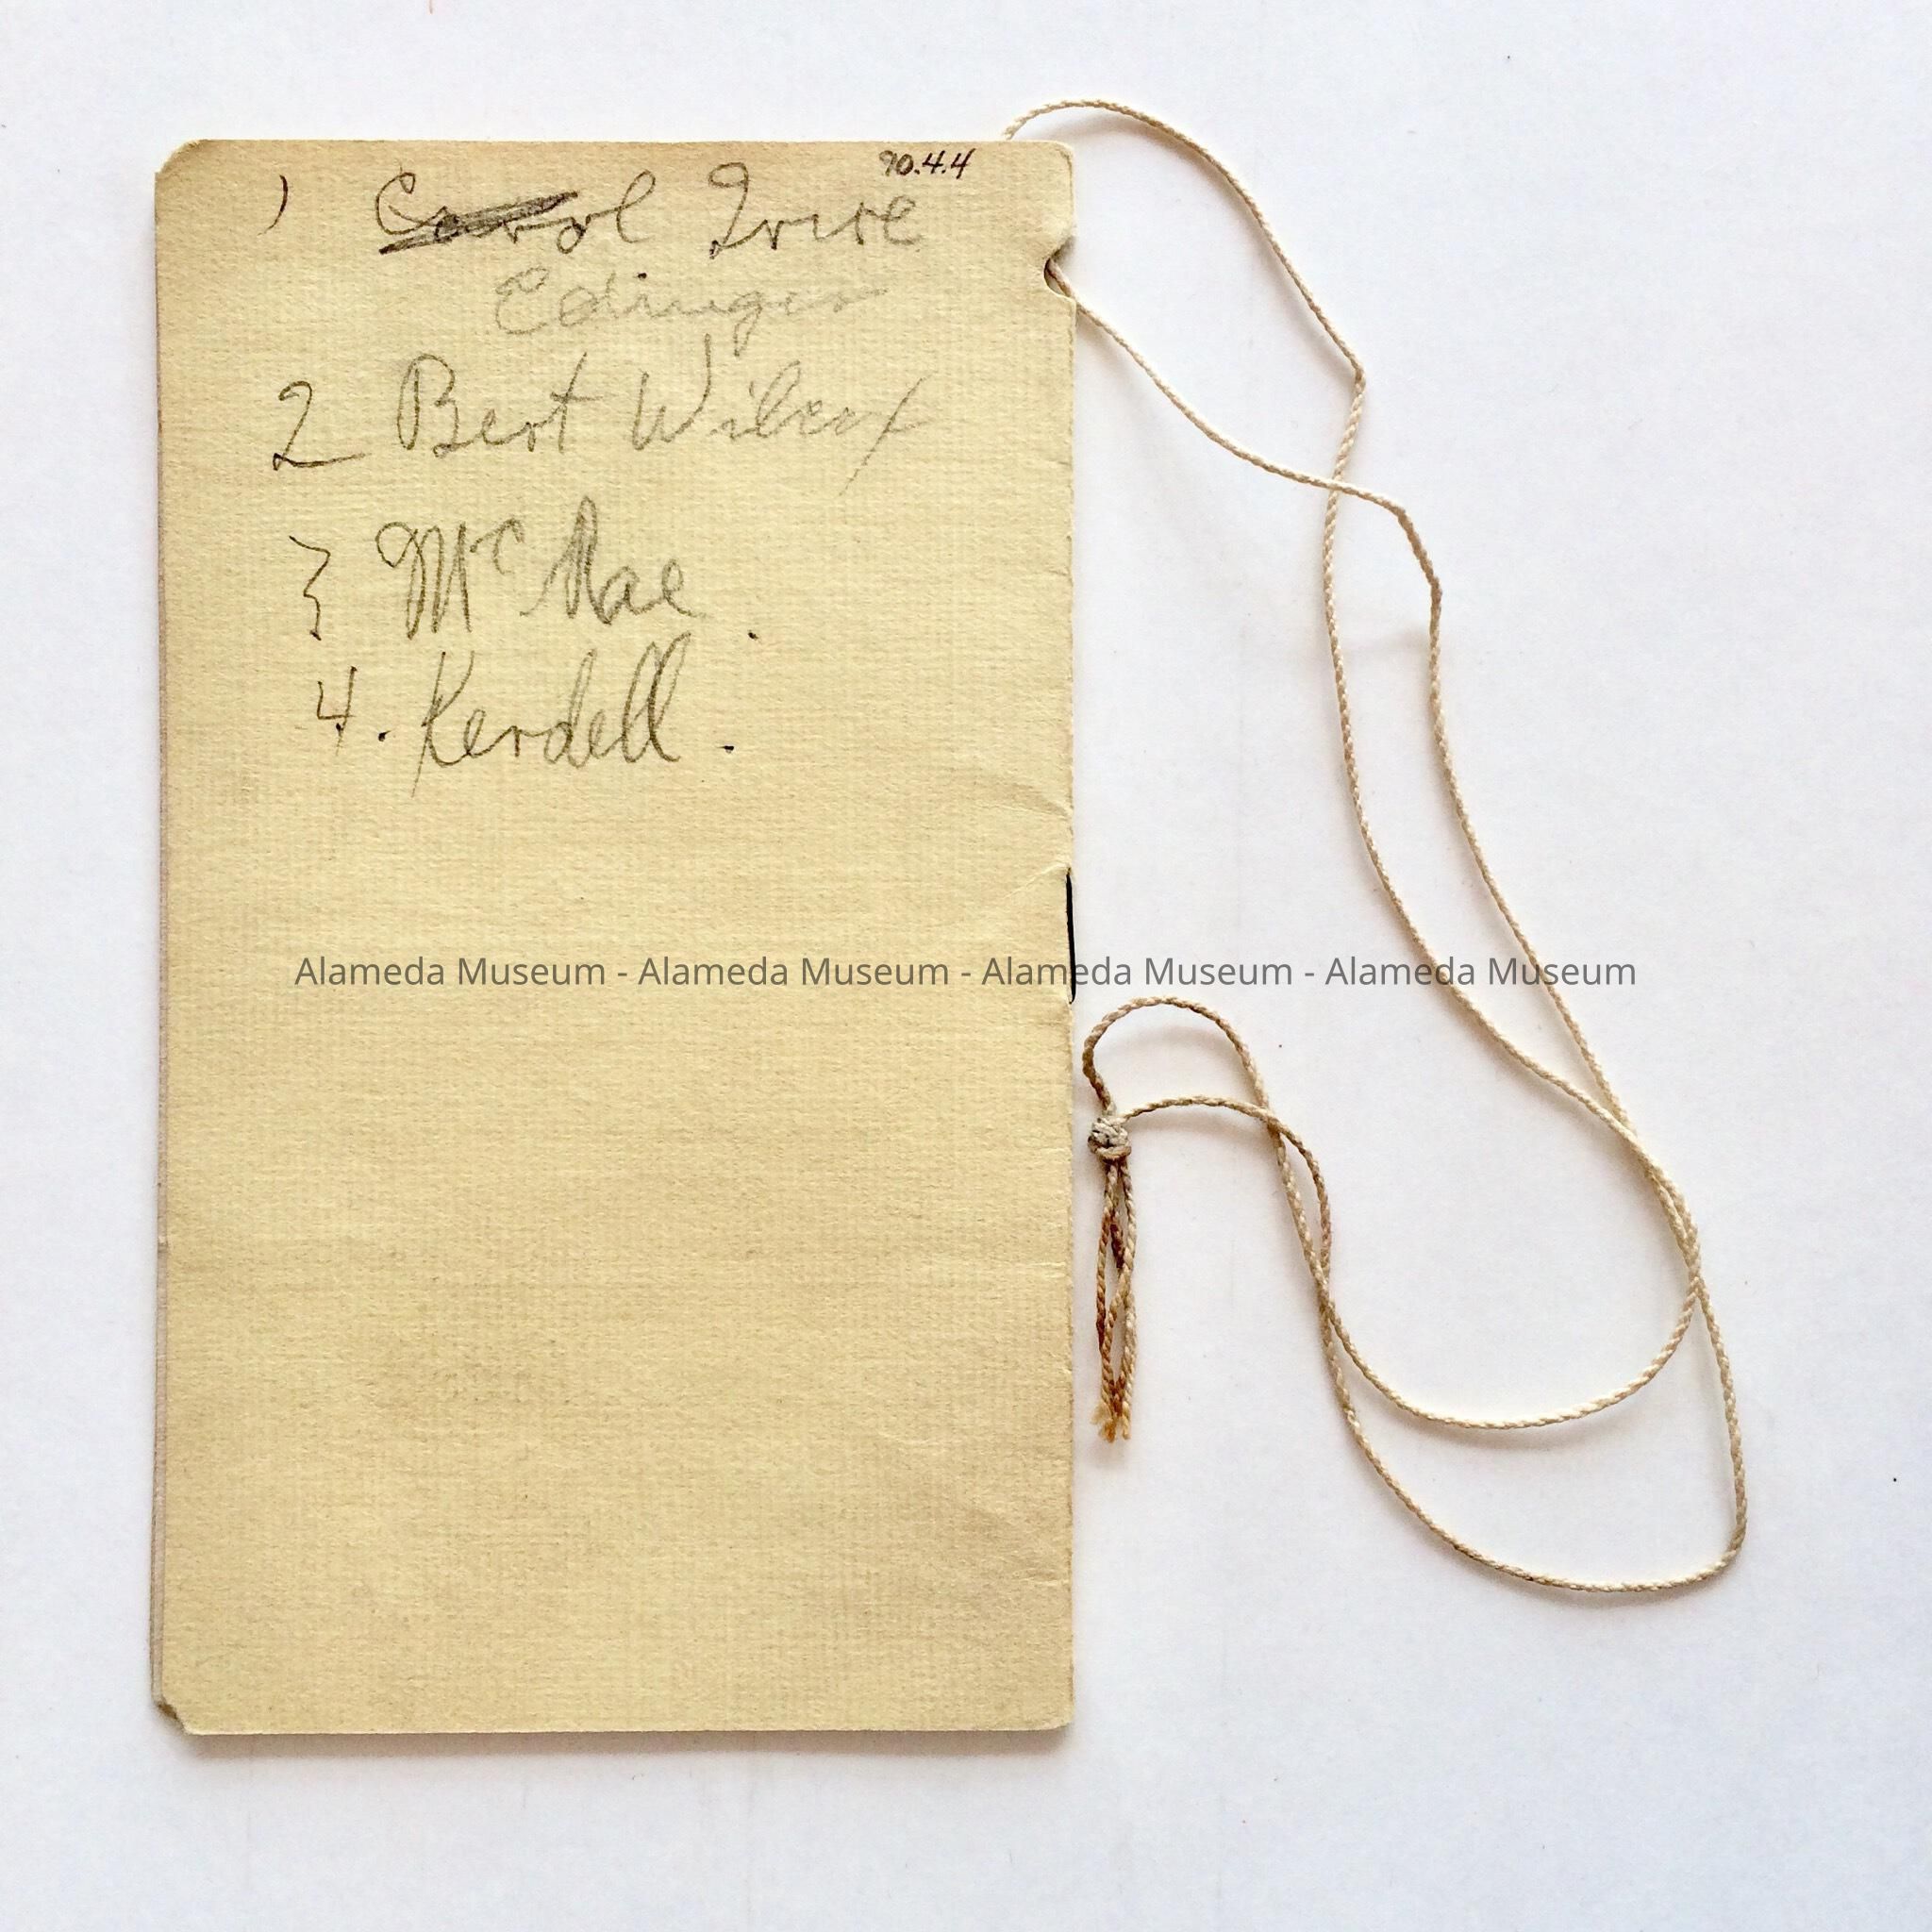 90.4.4
1)
2 Bert Wilcox
3 McRae.
4. Kendell.
Alameda Museum - Alameda Museum - Alameda Museum - Alameda Museum